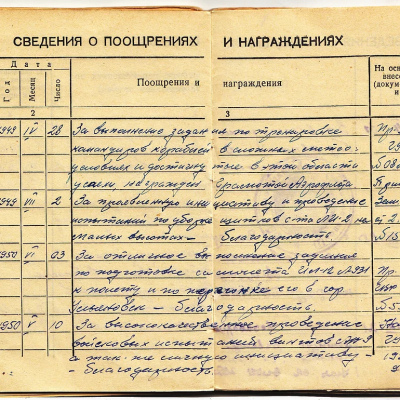 СВЕДЕНИЯ О ПООЩРЕНИЯХ И НАГРАЖДЕНИЯХ
Дата
Год Месяц Число
Поощрения и награждения
На осн
внес
(докум
и
2 3
1948 IV 28 За выполнение задания по тренировке
командиров кораблей в сложных метео-
условиях и достигнутые в этой области
успехи, награжден Грамотой Аэрофлота
1949 VIII 2 За проявленную инициативу и проведение
испытаний по уборке винтов с-та на
малых высотах - благодарность
1950 VI 03 За отличное выполнение задания
по подготовке самолета ИЛ-12 №931
к полету и по перегонке его в гор
Ульяновск - благодарность.
1950 V 10 За высококачественное проведение
войсковых испытаний винтов
а так-же личную инициативу -
- благодарность.